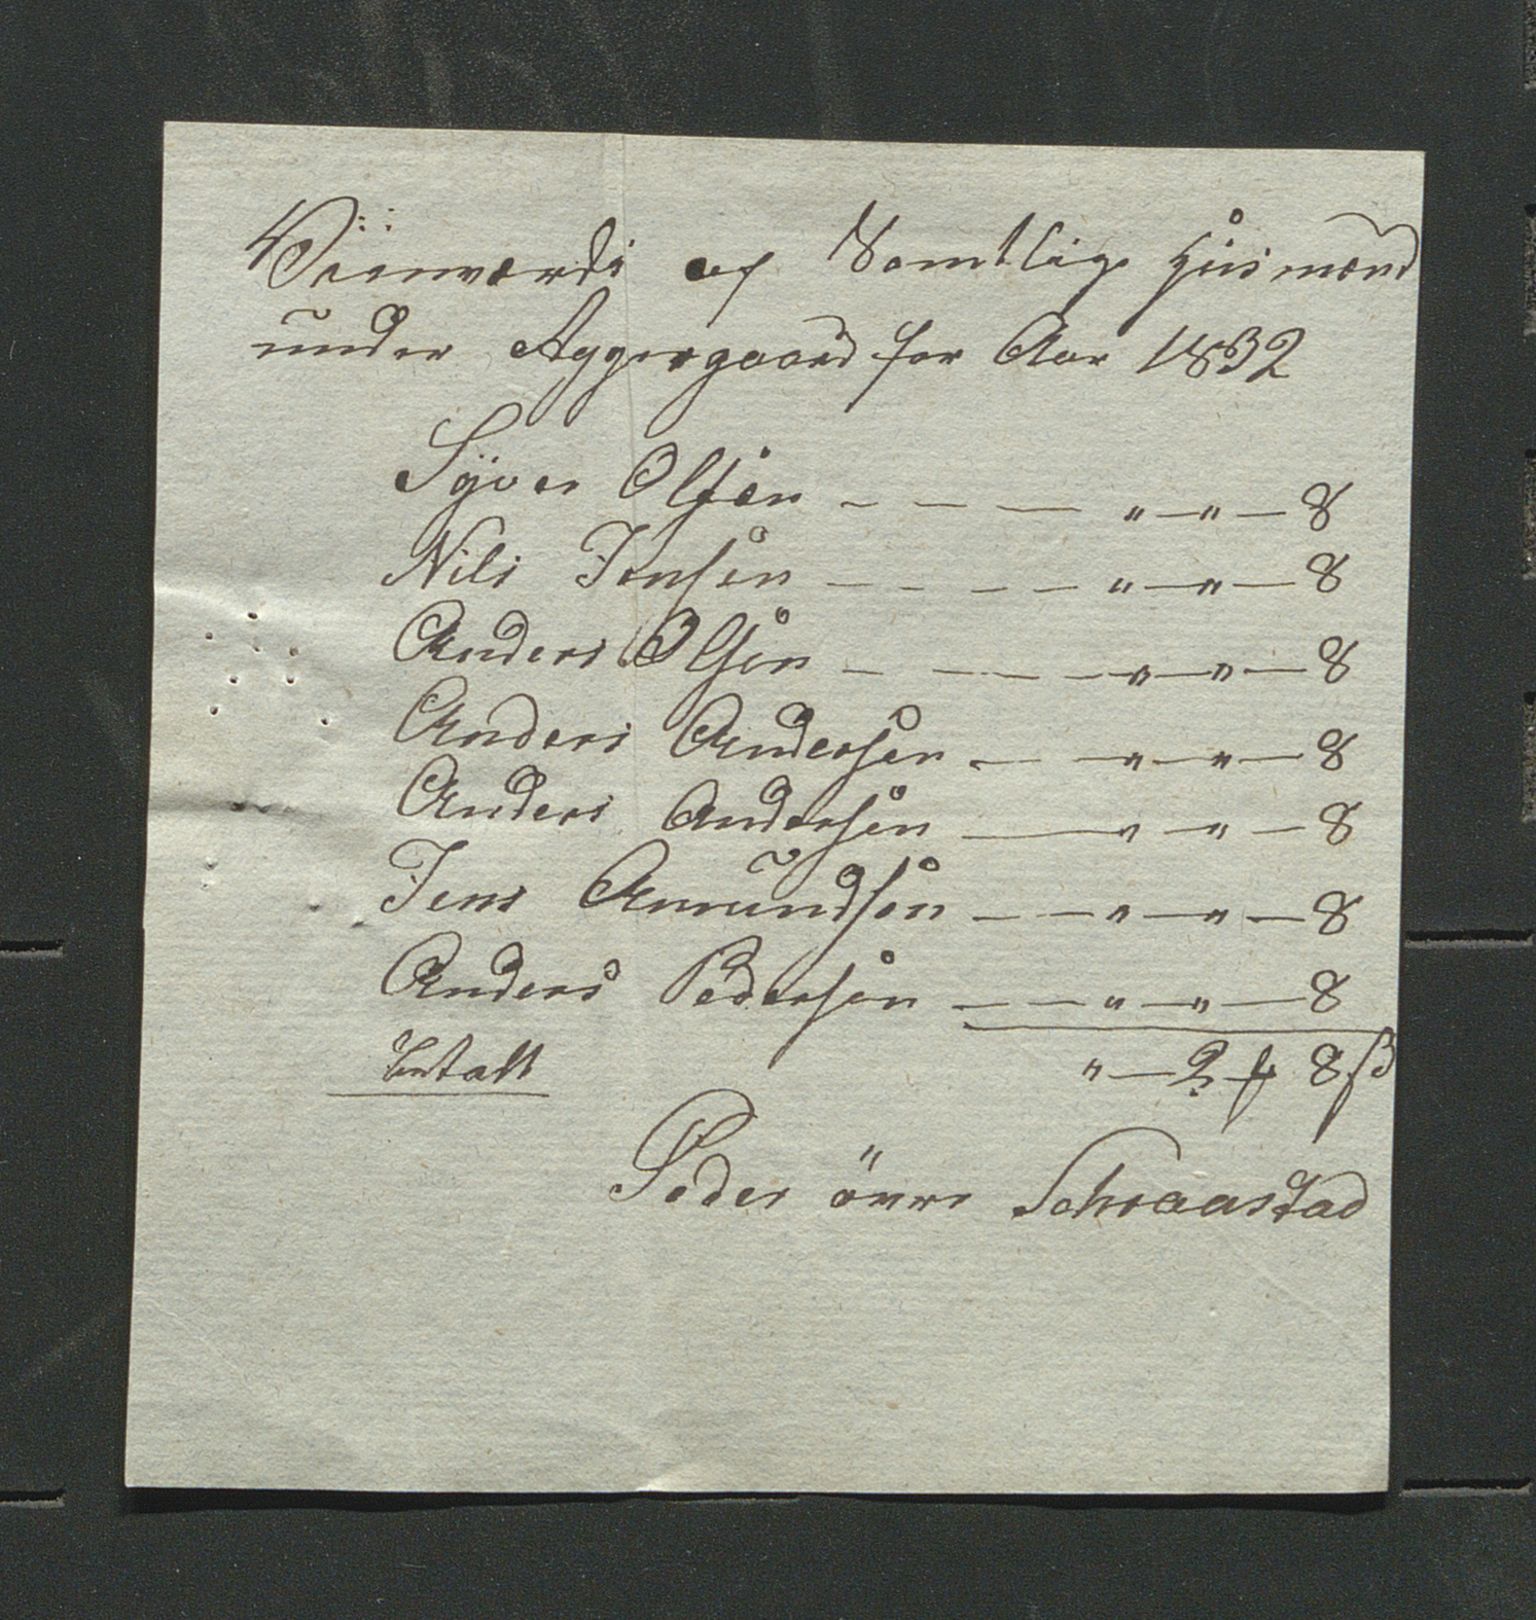 Viinværdi af Samtlige Husmænd
under Aggersgaard for Aar 1832
Syver Olsen — — — " — " — 8
Nils Jensen — — — — " — " — 8
Anders Olsen — — — — " — " — 8
Anders Andersen — — " — " — 8
Anders Andersen — " — " — 8
Jens Amundsen — — " — " — 8
Anders Pedersen — — " — " — 8
betalt " — 2 f 8 ß
Peder övre Schraastad